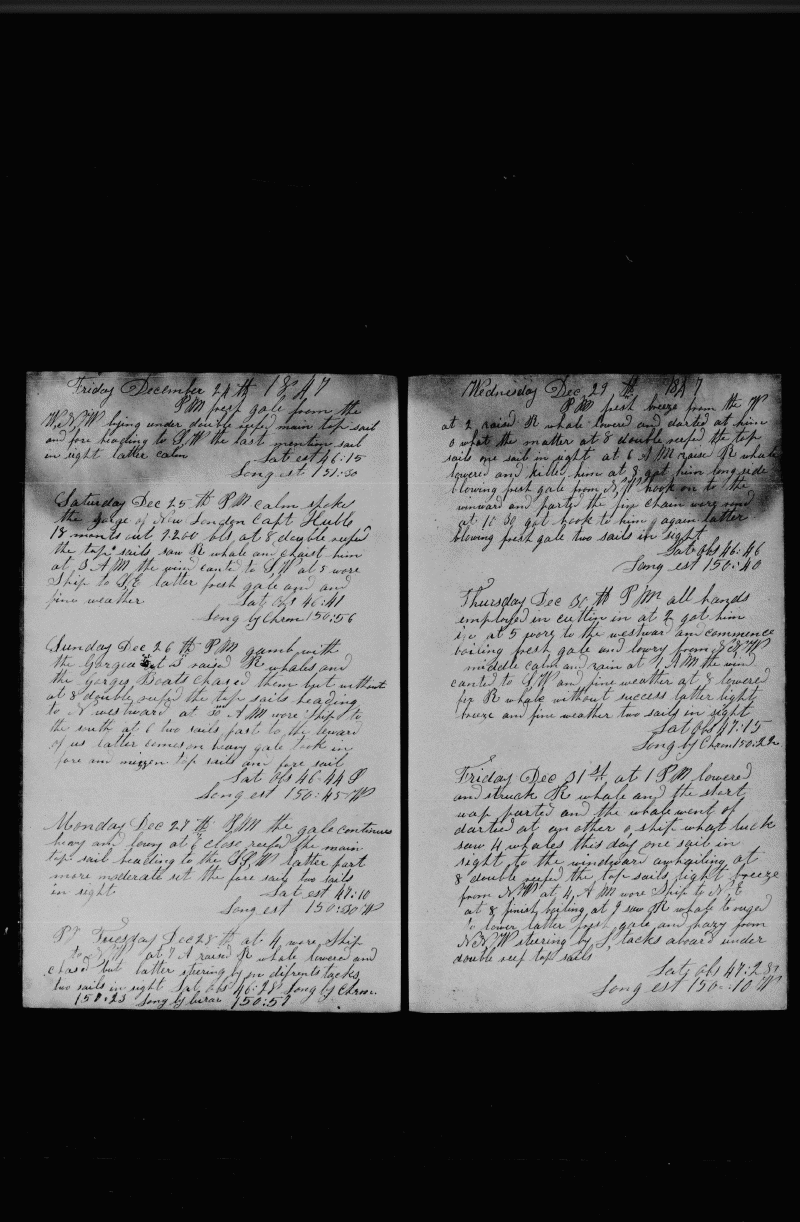 Friday December 24 th 1847
PM fresh gale from the
W.N.W lying under double reefed main top sail
and fore heading to S,W the last mention sail
in sight latter calm
Lat est 46:15
Long est 151:30
Saturday Dec 25 th PM calm spoke
the of New London Capt Hulls
18 months out 2200 bls, at 8 double reefed
the top sails saw R whale and chaist him
at 3 AM the wind canted to S,W at 5 wore
Ship to S,E latter fresh gale and and
fine weather
Lat obs 46:41
Long by Chron 150:56
Sunday Dec 26 th PM gamb with
the Gorgia at 3 raised R whales and
the gorgis Boats chased them but without
at 8 double reefed the top sails heading
to N westward at 30 AM wore Ship to
the south at 6 two sails fast to the leward
of us latter comes on heavy gale took in
fore and mizzen top sails and fore sail
Lat obs 46-44 S
Long est 150:45 W
Monday Dec 27 th PM the gale continues
heavy and lowry at 6 close reefed the main
top sail heading to the S,S,W latter part
more moderate set the fore sail two sails
in sight
Lat est 47:10
Long est 150:30 W
Tuesday Dec 28 th at 4 wore Ship
to at 7 A raised R whale lowered and
chased but latter stering by on defrents tacks
two sails in sight Lat obs 46:28 Long by Chron:
150:23 Long by lunar 150:51
Wednesday Dec 29 th 1847
PM fresh breeze from the W
at 2 raised R whale lowered and darted at him
o what the matter at 8 double reefed the top
sails one sail in sight at 6 AM raise R whale
lowered and killed him at 8 got him long side
blowing fresh gale from N,W hook on to the
winward and parted the fin chain wore rond
at 10 30 got hook to him again latter
blowing fresh gale two sails in sight
Lat obs 46:46
Long est 150:40
Thursday Dec 30 th PM all hands
employed in cutten in at 2 got him
in at 5 wore to the westwar and commence
boiling fresh gale and lowry from
middle calm and rain at 7 AM the wind
canted to S,W and fine weather at 8 lowered
for R whale without success latter light
breeze and fine weather two sails in sight
Lat obs 47:15
Long by Chron 150:22
Friday Dec 31 st at 1 PM lowered
and struck R whale and the start
wap parted and the whale went of
darted at an other o, ship what luck
saw 4 whales this day one sail in
sight to the windward awhaling at
8 double reefed the top sails light breeze
from N,W at 4, AM wore Ship to N,E
at 8 finish boiling at 9 saw R whale to ruged
to lower latter fresh gale and hazy from
N.N,W steering by S, tacks aboard under
double reef top sails
Lat obs 47:28
Long est 150:10 W